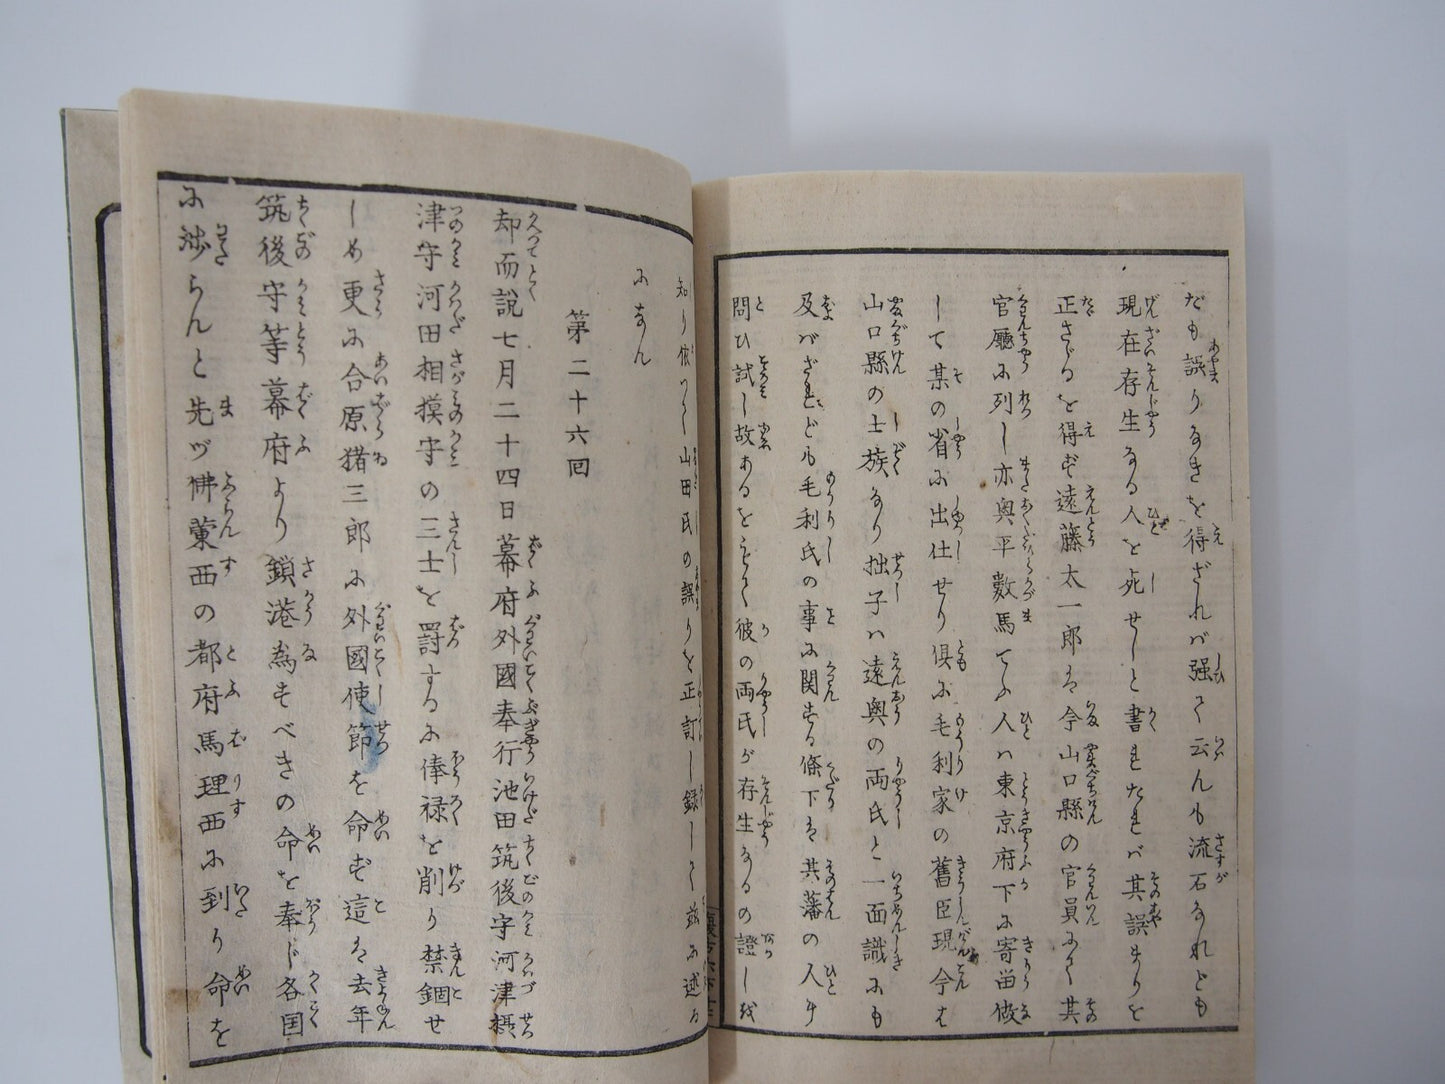 だも誤りなきを得ざれバ強て云んも流石なれども
現在存生なる人を死せしと書れたれバ其誤まりを
正さゞるを得ず遠藤太一郎ハ今山口縣の官員にて其
官廳に列し亦奥平數馬てふ人ハ東京府下に寄畄做
して某の省に出仕せり倶に毛利家の舊臣現今は
山口縣の士族なり拙子ハ遠奥の両氏と一面識にも
及バざれども毛利氏の事に関する條下は其藩の人に
問ひ試し故あるをもて彼の両氏が存生なるの證しを
知り依つて山田氏の誤りを正訂し録して茲に述る
になん
第二十六回
却而説七月二十四日幕府外國奉行池田筑後守河津摂
津守河田相摸守の三士を罰するに俸禄を削り禁錮せ
しめ更に合原猪三郎に外國使節を命ず這は去年
筑後守等幕府より鎖港為すべきの命を奉じ各国
に渉らんと先ヅ佛蘭西の都府馬理西に到り命を